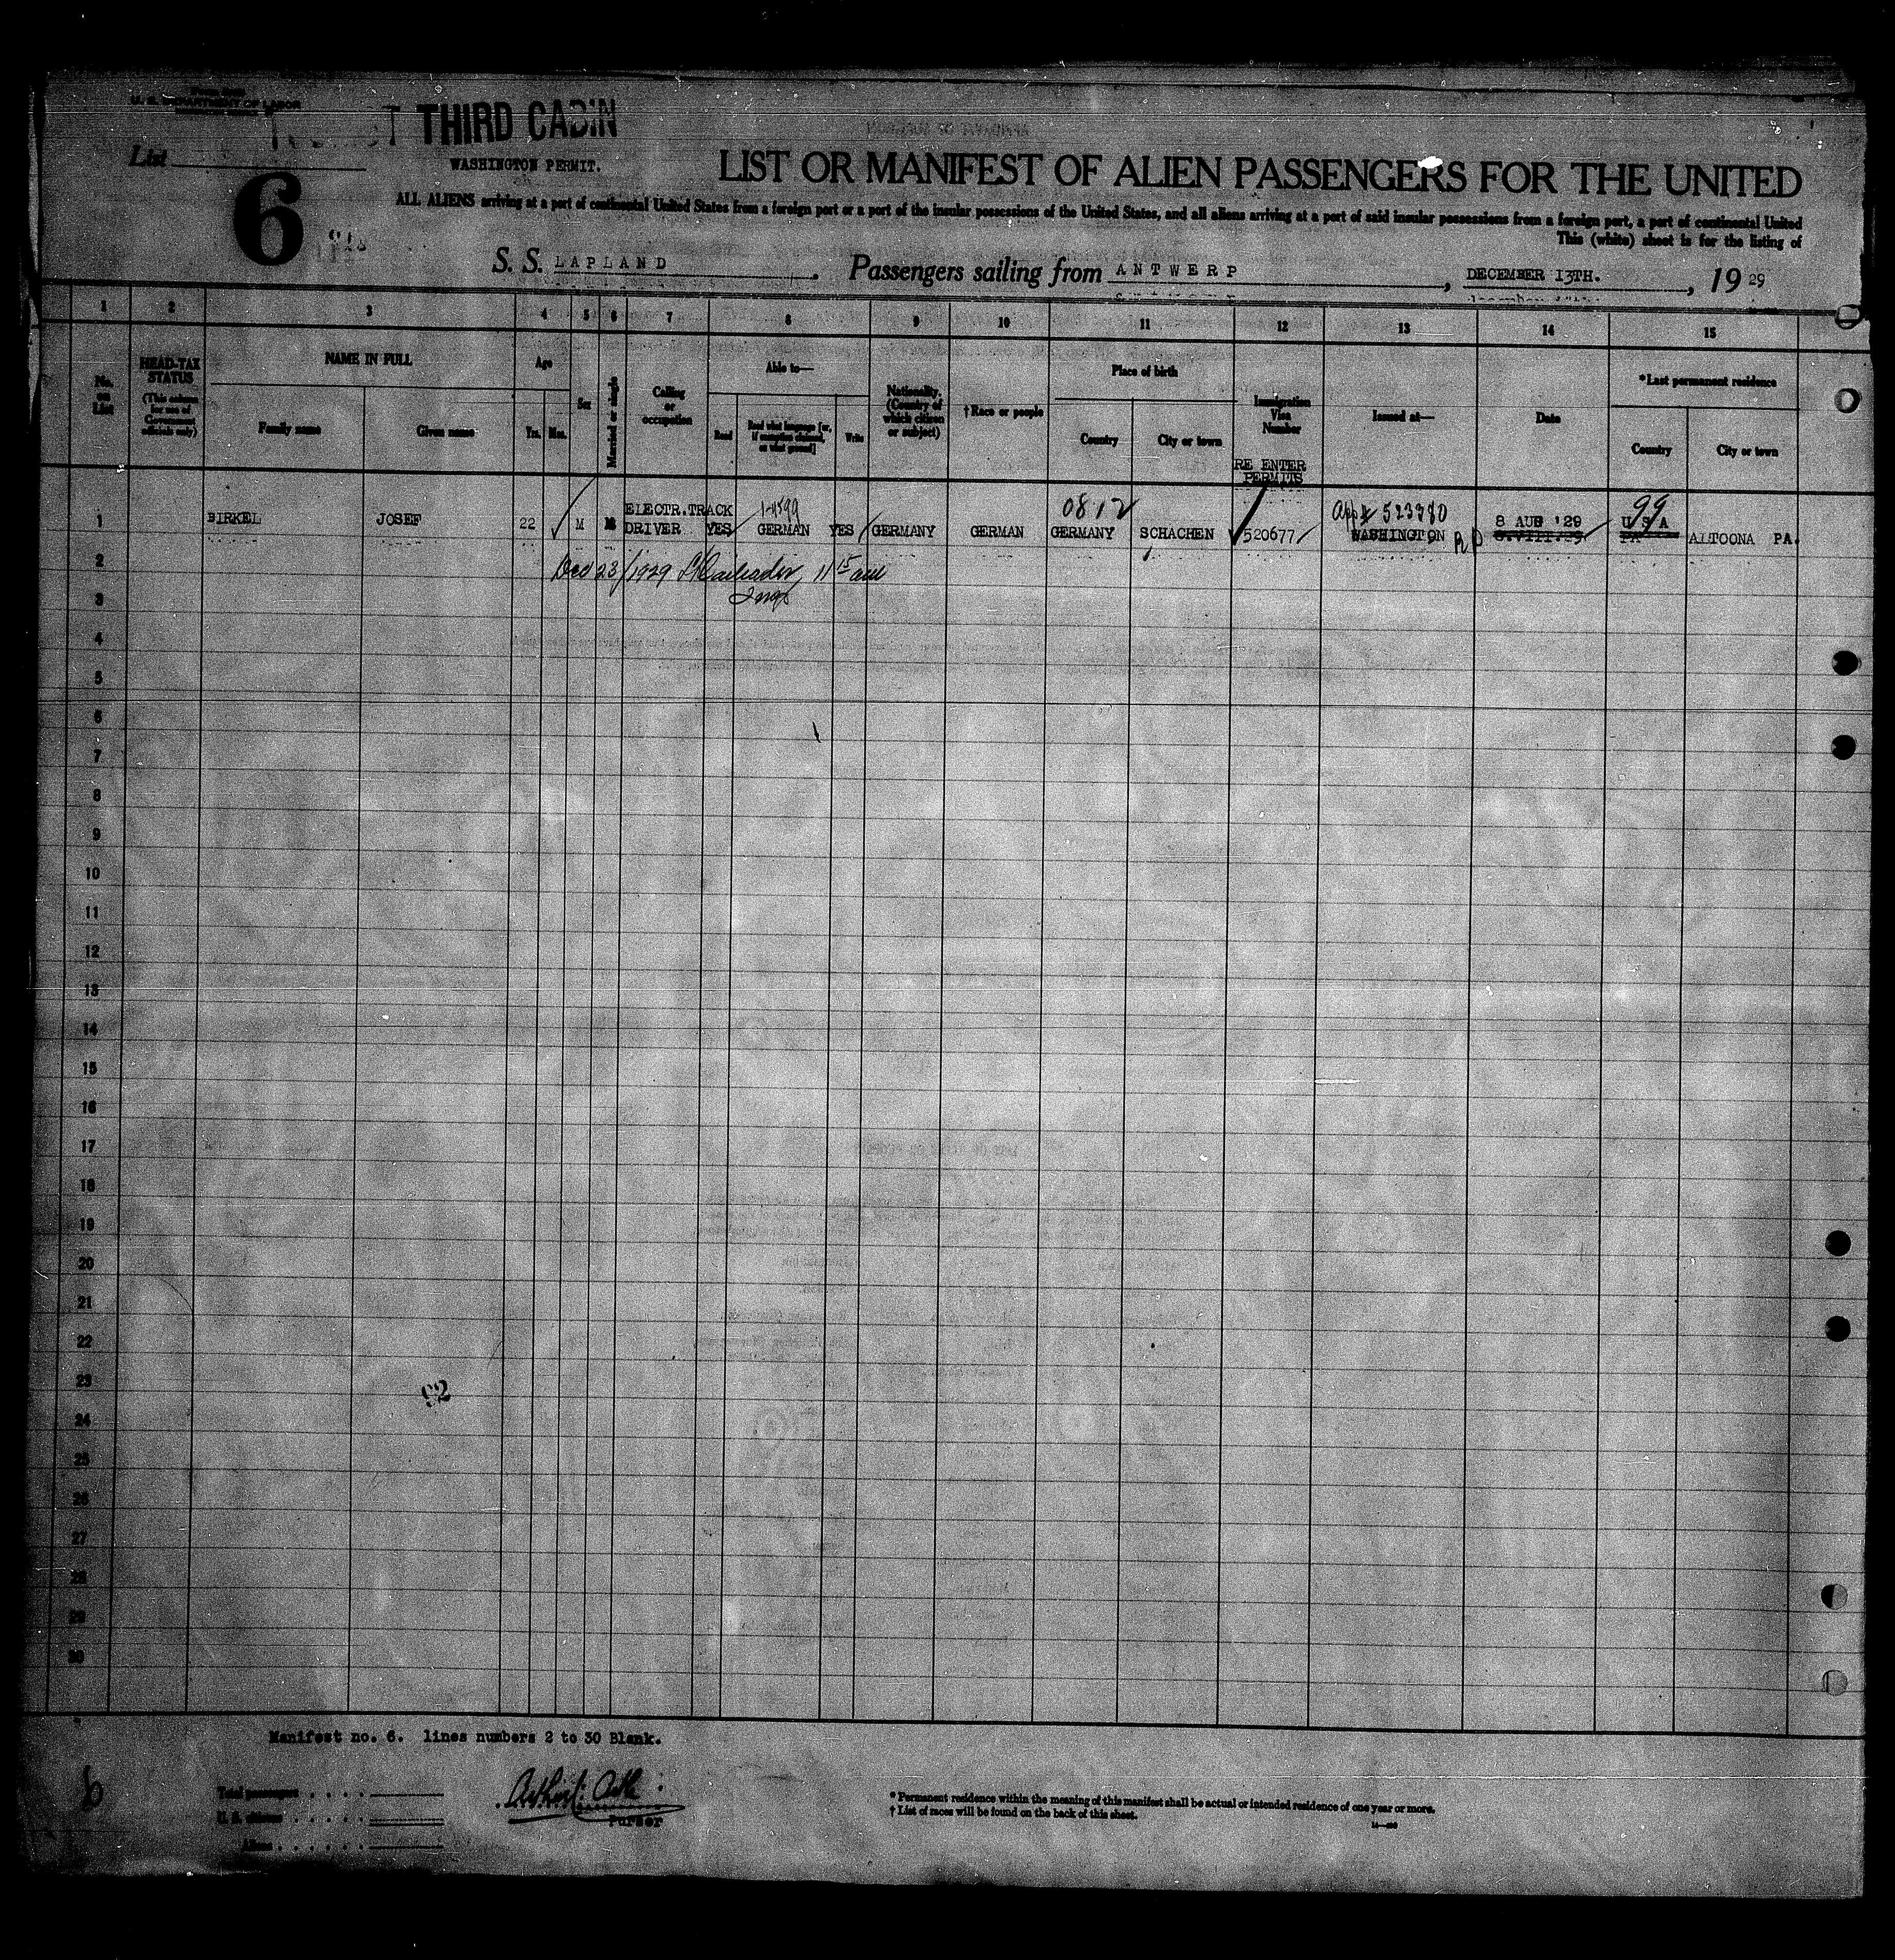 U. S. DEPARTMENT OF LABOR
THIRD CABIN
List
WASHINGTON PERMIT.
6
LIST OR MANIFEST OF ALIEN PASSENGERS FOR THE UNITED
ALL ALIENS arriving at a port of continental United States from a foreign port or a port of the insular possessions of the United States, and all aliens arriving at a port of said insular possessions from a foreign port, a port of continental United
This (white) sheet is for the listing of
S. S. LAPLAND. Passengers sailing from ANTWERP, DECEMBER 13TH., 1929
1 2 3 4 5 6 7 8 9 10 11 12 13 14 15
No. on List
HEAD-TAX STATUS
(This column for use of Government officials only)
NAME IN FULL
Family name
Given name
Age
Yrs.
Mos.
Sex
Married or single
Calling or occupation
Able to—
Read
Read what language [or, if exemption claimed, on what ground]
Write
Nationality. (Country of which citizen or subject)
† Race or people
Place of birth
Country
City or town
Immigration Visa Number
RE ENTER PERMITS
Issued at—
Date
*Last permanent residence
Country
City or town
1-4599 0812 App# 523780 99
1 BIRKEL JOSEF 22 M ELECTR.TRACK DRIVER YES GERMAN YES GERMANY GERMAN GERMANY SCHACHEN 520677 WASHINGTON RP 8 AUG '29 8.VIII.29 U S A PA ALTOONA PA.
2 Dec 23/1929 11 15 am
3 Insp
4
5
6
7
8
9
10
11
12
13
14
15
16
17
18
19
20
21
22
23
24
25
26
27
28
29
30
Manifest no. 6. lines numbers 2 to 30 Blank.
6
Total passengers
U. S. citizens
Aliens
Purser
* Permanent residence within the meaning of this manifest shall be actual or intended residence of one year or more.
† List of races will be found on the back of this sheet.